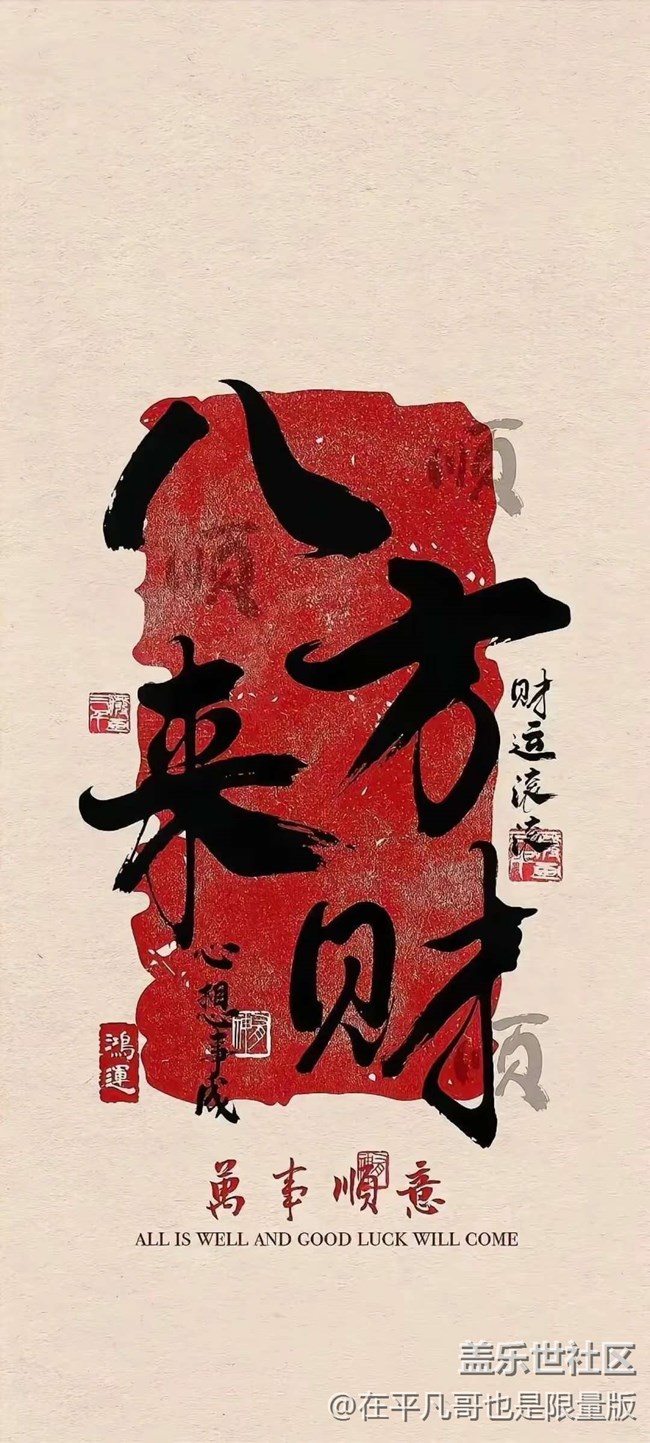 八方来财
顺
顺
财运滚滚
心想事成
鸿運
顺
萬事順意
ALL IS WELL AND GOOD LUCK WILL COME
盖乐世社区
@在平凡哥也是限量版